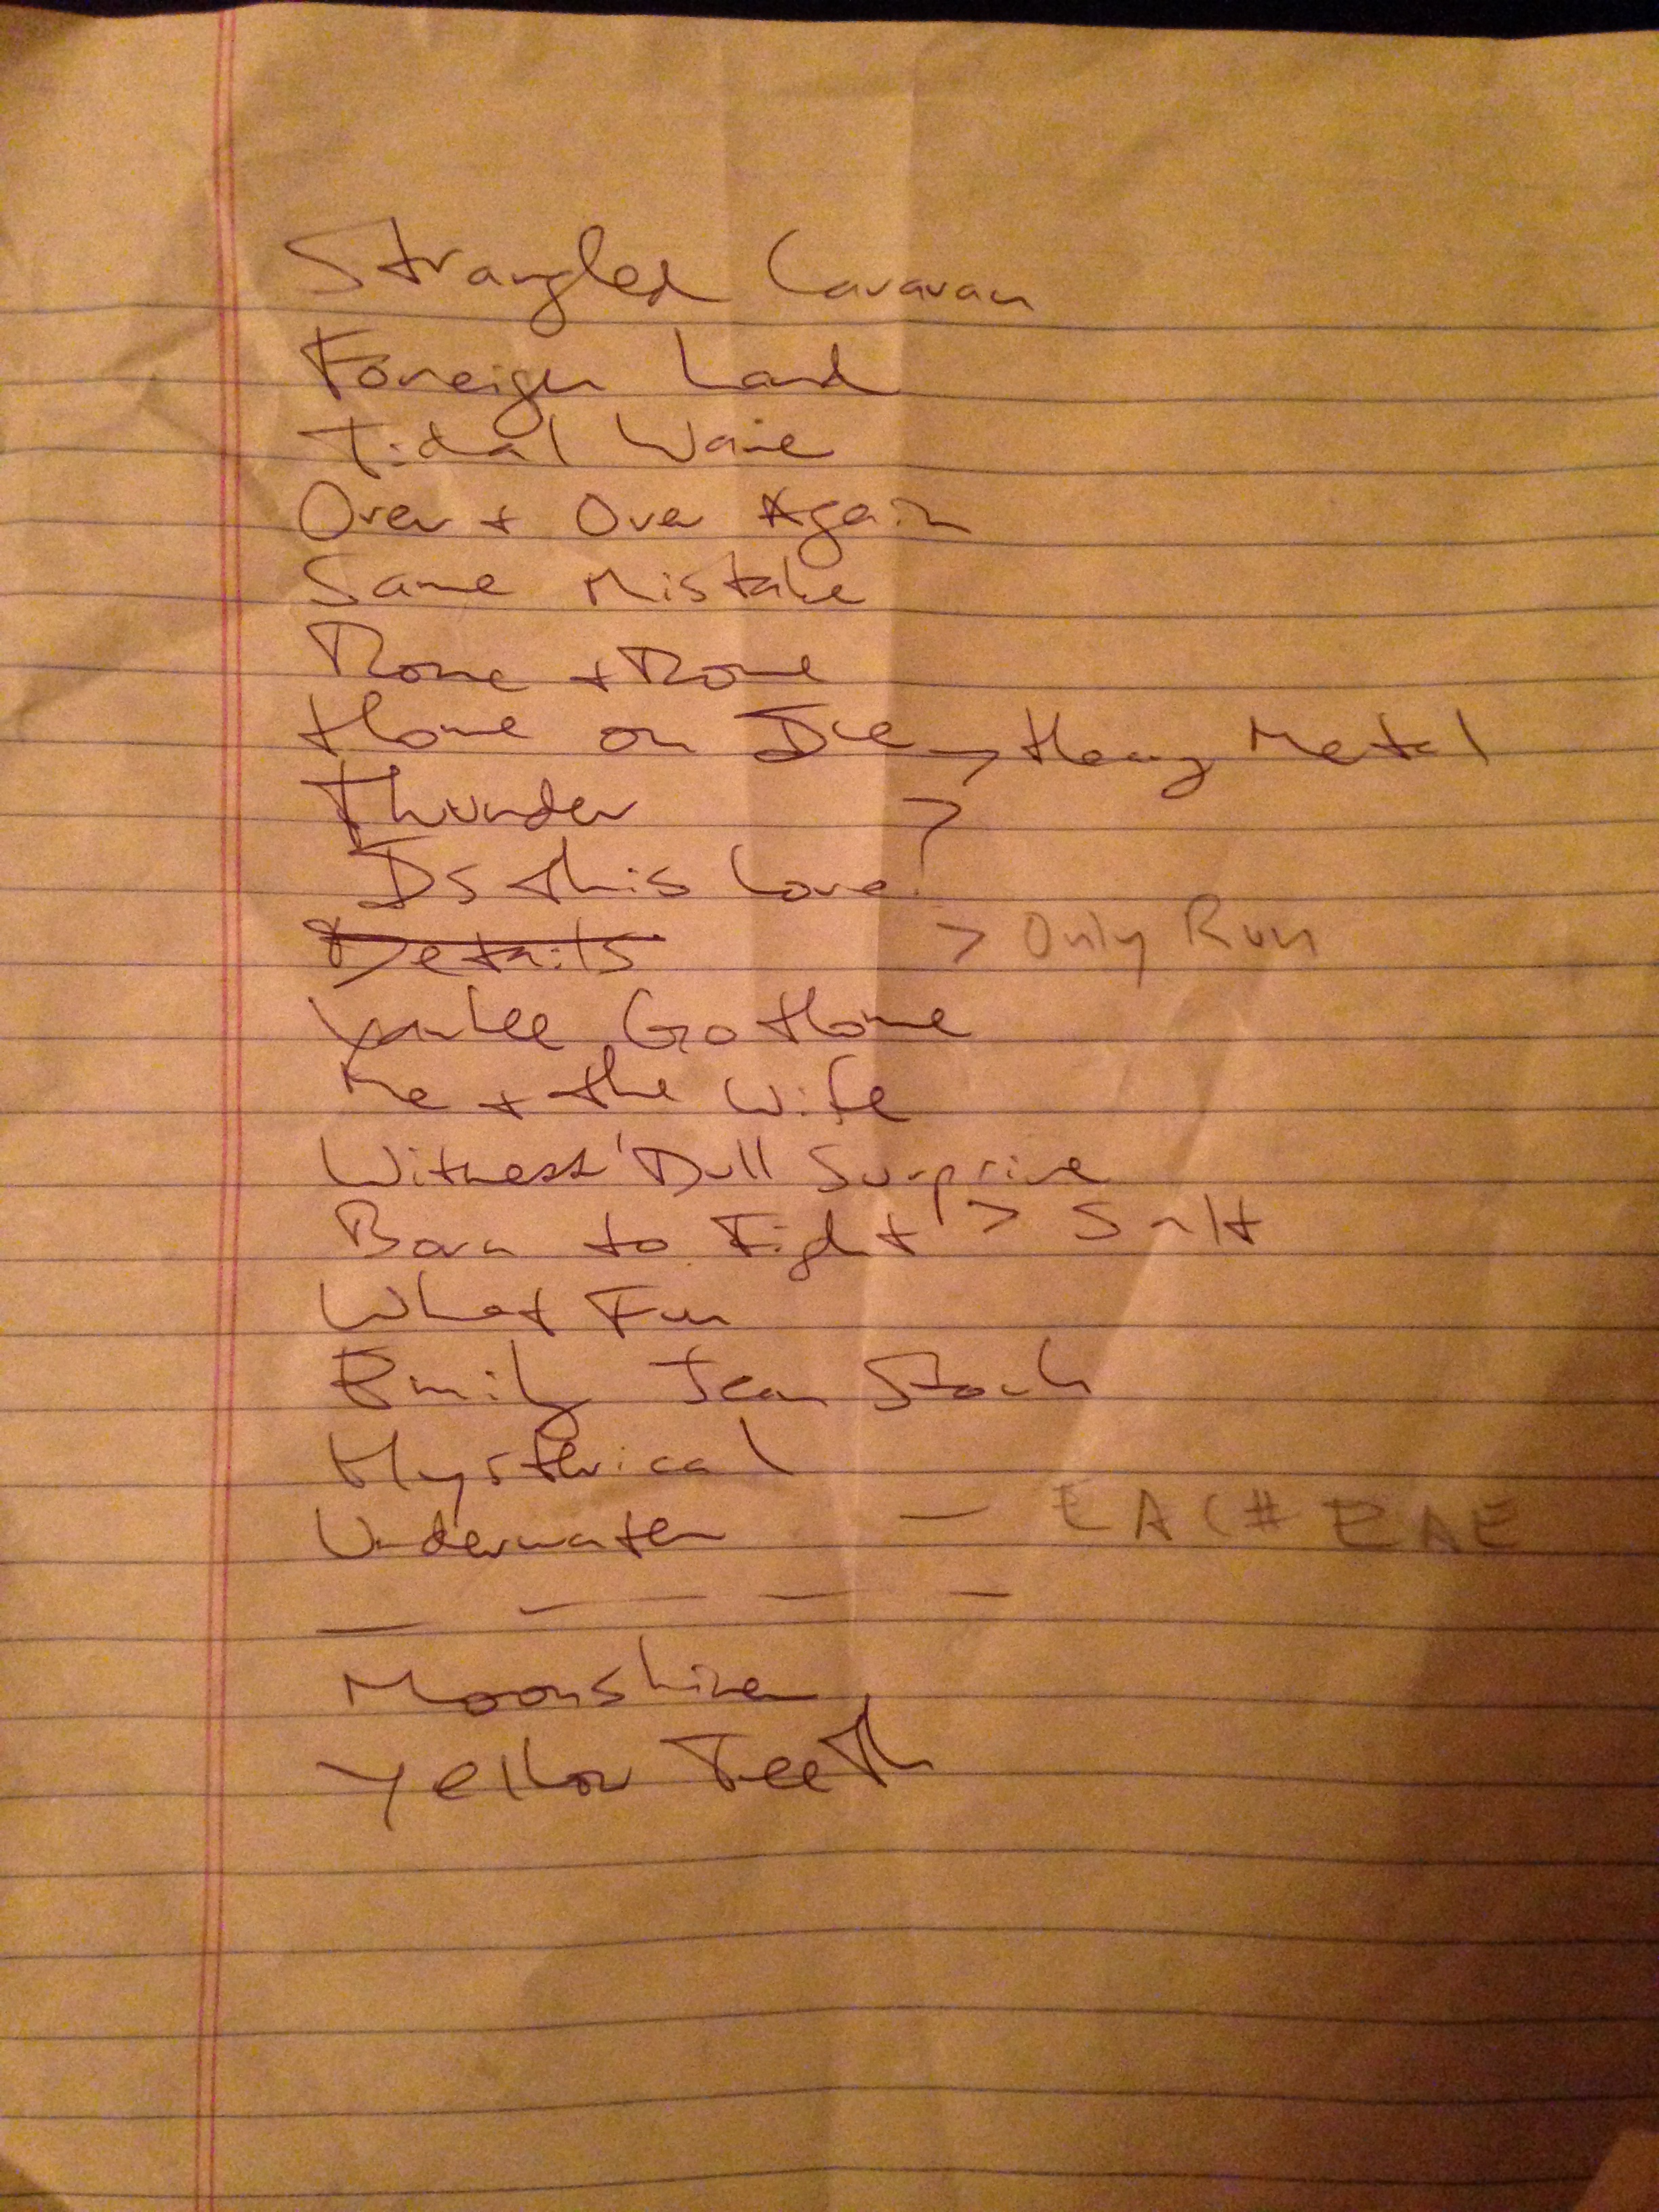 Strangled Caravan
Foreign Land
Tidal Wave
Over + Over Again
Same Mistake
Rome + Rome
Home on Ice → Heavy Metal
Thunder >
Is this Love?
Details > Only Run
Yankee Go Home
Me + the Wife
Witness' Dull Surprise
Born to Fight > Salt
What Fun
Emily Jean Stock
Hysterical
Underwater — E A C# E A E
— — — — —
Moonshiner
Yellow Teeth